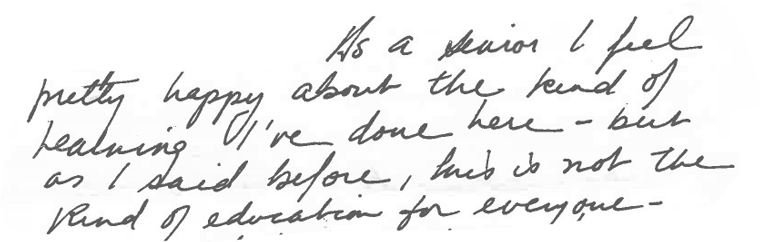 As a senior I feel
pretty happy about the kind of
learning I've done here - but
as I said before, this is not the
kind of education for everyone -